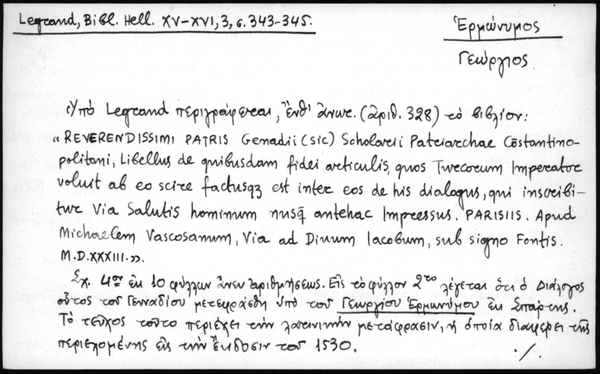 Legrand, Bibl. Hell. XV-XVI, 3, σ. 343-345.
Ἑρμώνυμος
Γεώργιος
Ὑπὸ Legrand περιγράφεται, ἔνθ' ἀνωτ. (ἀριθ. 328) τὸ βιβλίον:
« REVERENDISSIMI PATRIS Genadii (sic) Scholarii Patriarchae Costantino-
politani, Libellus de quibusdam fidei articulis, quos Turcorum Imperator
voluit ab eo scire factusq3 est inter eos de his dialogus, qui inscribi-
tur Via Salutis hominum nusq̄ antehac Impressus. PARISIIS. Apud
Michaelem Vascosanum, Via ad Diuum Iacobum, sub signo Fontis.
M.D.XXXIII.».
Σχ. 4ον ἐκ 10 φύλλων ἄνευ ἀριθμήσεως. Εἰς τὸ φύλλον 2το λέγεται ὅτι ὁ Διάλογος
οὗτος τοῦ Γενναδίου μετεφράσθη ὑπὸ τοῦ Γεωργίου Ἑρμωνύμου ἐκ Σπάρτης.
Τὸ τεῦχος τοῦτο περιέχει τὴν λατινικὴν μετάφρασιν, ἡ ὁποία διαφέρει τῆς
περιεχομένης εἰς τὴν ἔκδοσιν τοῦ 1530.
./.